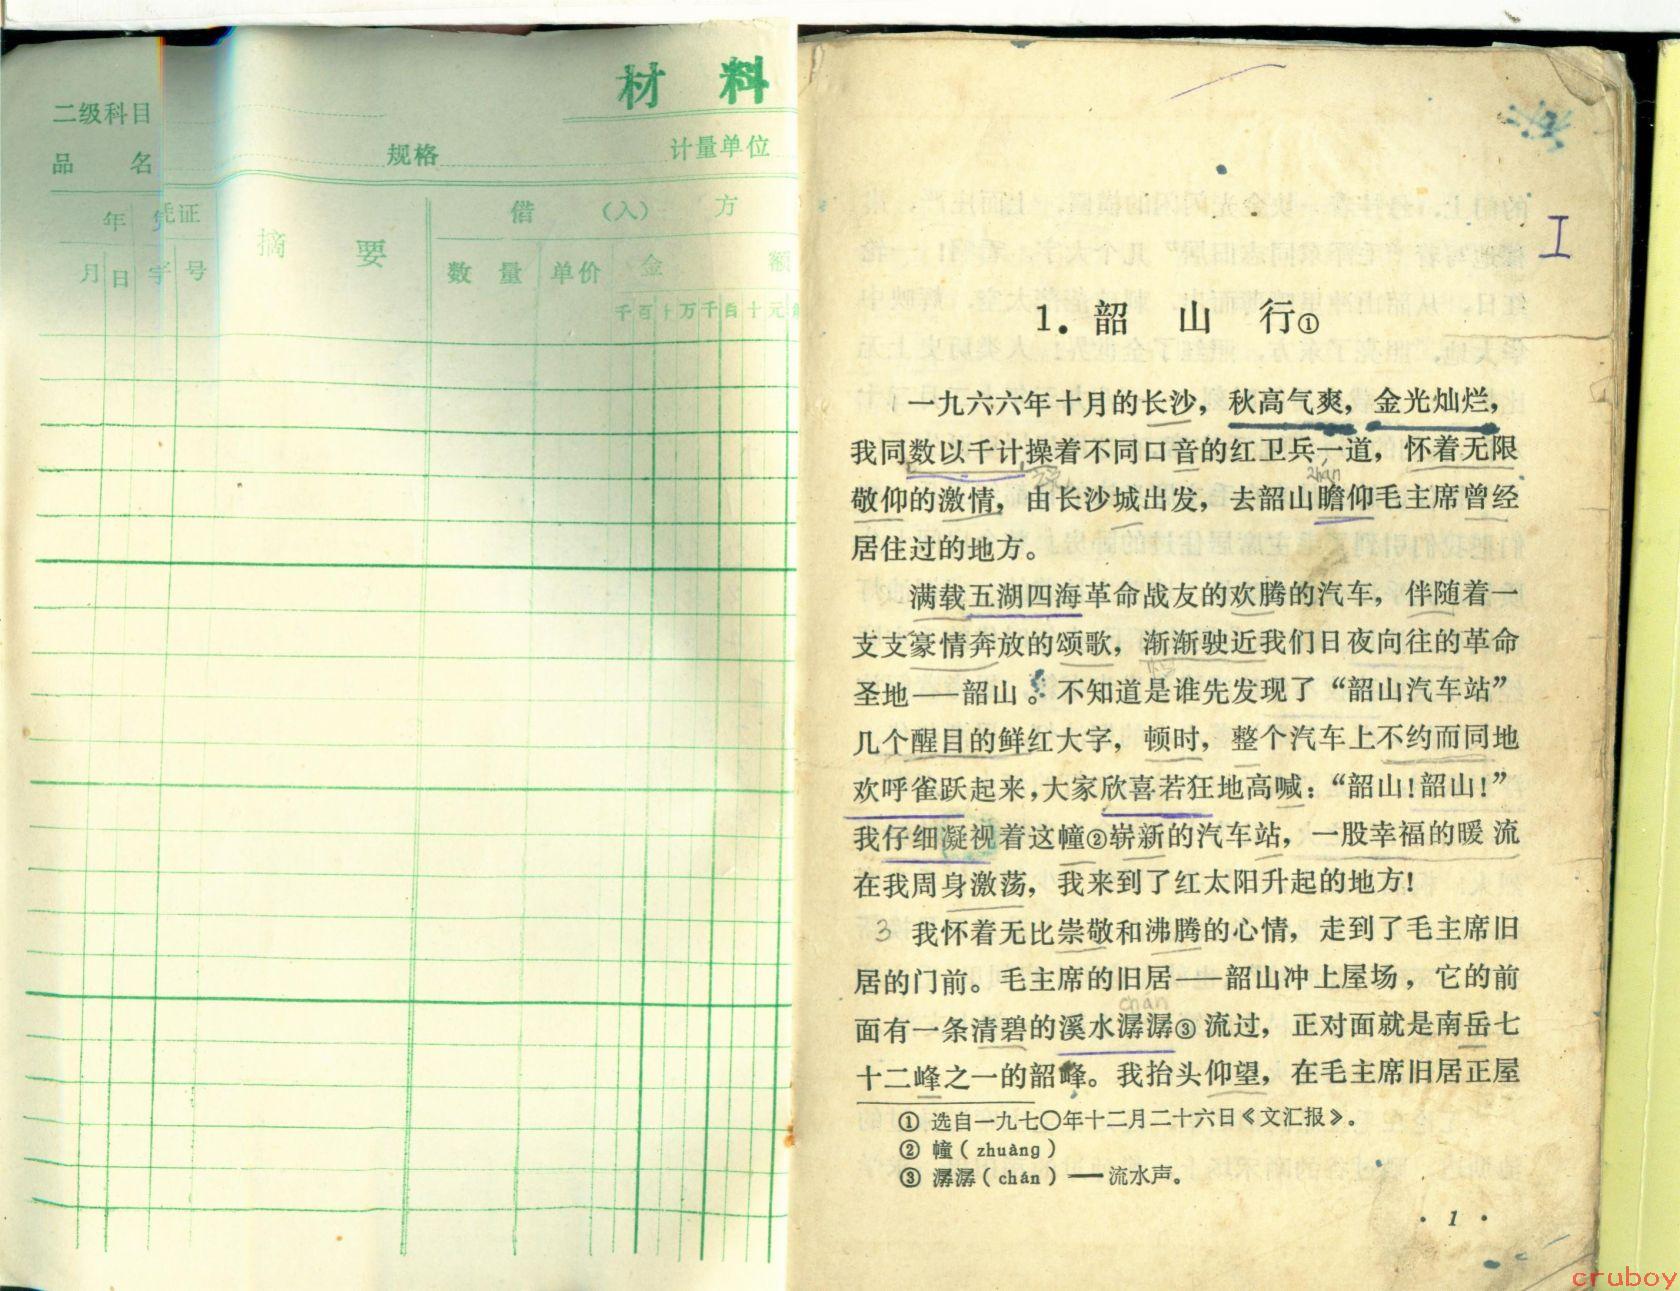 材 料
二级科目
品 名 规格 计量单位
年 凭证 摘 要 借 (入) 方
月 日 字 号 数 量 单价 金 额
千百十万千百十元
I
1. 韶 山 行①
一九六六年十月的长沙，秋高气爽，金光灿烂，
我同数以千计操着不同口音的红卫兵一道，怀着无限
zhān
敬仰的激情，由长沙城出发，去韶山瞻仰毛主席曾经
居住过的地方。
满载五湖四海革命战友的欢腾的汽车，伴随着一
支支豪情奔放的颂歌，渐渐驶近我们日夜向往的革命
圣地——韶山。不知道是谁先发现了“韶山汽车站”
几个醒目的鲜红大字，顿时，整个汽车上不约而同地
欢呼雀跃起来，大家欣喜若狂地高喊：“韶山！韶山！”
我仔细凝视着这幢②崭新的汽车站，一股幸福的暖流
在我周身激荡，我来到了红太阳升起的地方！
3 我怀着无比崇敬和沸腾的心情，走到了毛主席旧
居的门前。毛主席的旧居——韶山冲上屋场，它的前
chán
面有一条清碧的溪水潺潺③流过，正对面就是南岳七
十二峰之一的韶峰。我抬头仰望，在毛主席旧居正屋
① 选自一九七〇年十二月二十六日《文汇报》。
② 幢（zhuàng）
③ 潺潺（chán）——流水声。
· 1 ·
cruboy